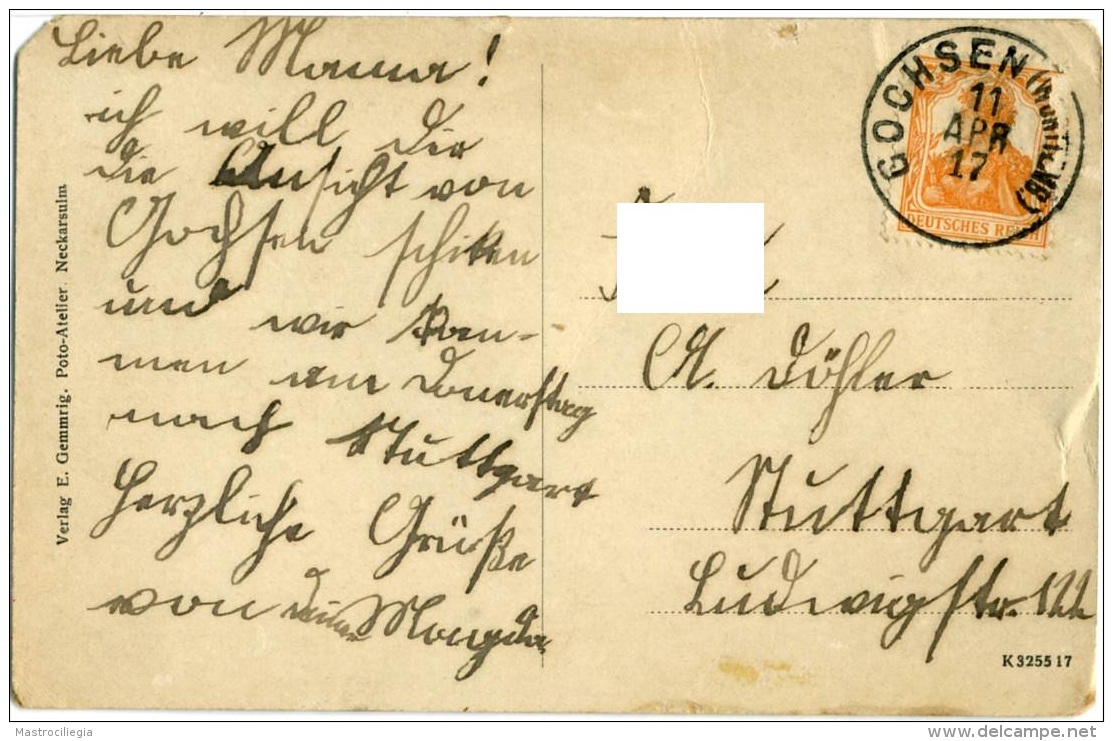 Liebe Mama!
ich will dir
die Ansicht von
Gochsen schiken
und wir kom-
men am Donerstag
nach Stuttgart
Herzliche Grüße
von deine Magda
Verlag E. Gemmrig. Poto-Atelier. Neckarsulm
GOCHSEN
11
APR
17
DEUTSCHES REICH
A. Döhler
Stuttgart
Ludwigstr.
K 3255 17
Mastrociliegia
delcampe.net